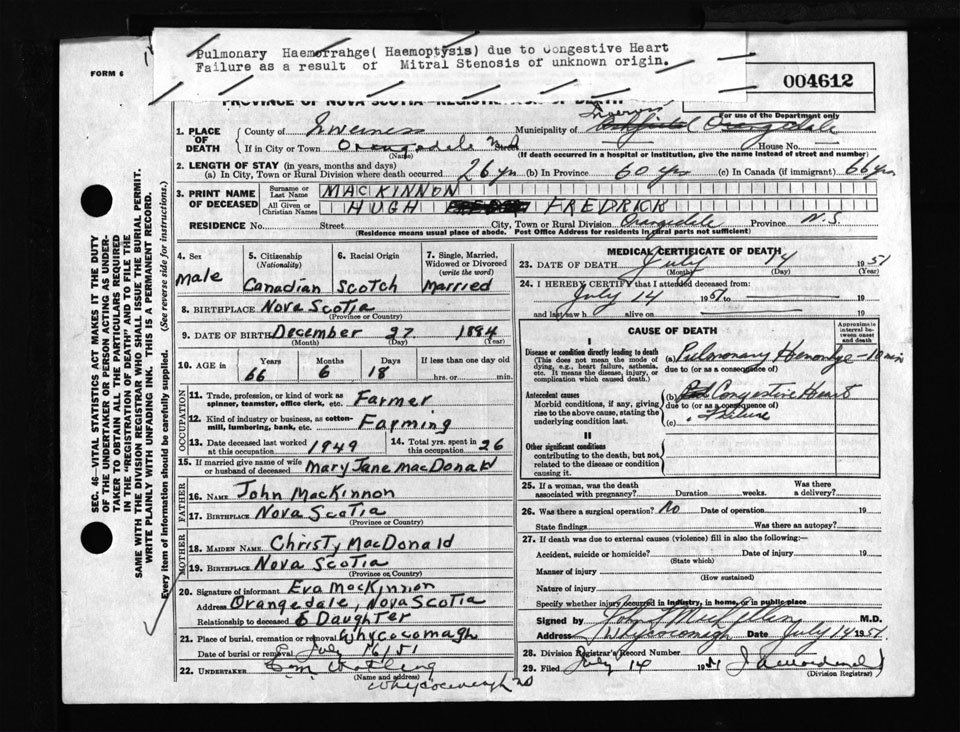 Pulmonary Haemorrahge( Haemoptysis) due to Congestive Heart
Failure as a result of Mitral Stenosis of unknown origin.
FORM 6
004612
PROVINCE OF NOVA SCOTIA—REGISTRATION OF DEATH
For use of the Department only
1. PLACE OF DEATH
County of Inverness Municipality of Inverness
If in City or Town Orangedale Street House No.
(Name) (If death occurred in a hospital or institution, give the name instead of street and number)
2. LENGTH OF STAY (in years, months and days)
(a) In City, Town or Rural Division where death occurred. 26 yrs (b) In Province 60 yrs (c) In Canada (if immigrant) 66 yrs
3. PRINT NAME OF DECEASED
Surname or Last Name MACKINNON
All Given or Christian Names HUGH FREDRICK
RESIDENCE No. Street City, Town or Rural Division Orangedale Province N.S.
(Residence means usual place of abode. Post Office Address for residents in rural parts not sufficient)
4. Sex Male
5. Citizenship (Nationality) Canadian
6. Racial Origin Scotch
7. Single, Married, Widowed or Divorced (write the word) Married
8. BIRTHPLACE Nova Scotia
(Province or Country)
9. DATE OF BIRTH December 27 1884
(Month) (Day) (Year)
10. AGE in Years Months Days If less than one day old
66 6 18 hrs. or min.
OCCUPATION
11. Trade, profession, or kind of work as spinner, teamster, office clerk, etc. Farmer
12. Kind of industry or business, as cotton-mill, lumbering, bank, etc. Farming
13. Date deceased last worked at this occupation 1949
14. Total yrs. spent in this occupation 26
15. If married give name of wife or husband of deceased Mary Jane MacDonald
FATHER
16. NAME John MacKinnon
17. BIRTHPLACE Nova Scotia
(Province or Country)
MOTHER
18. MAIDEN NAME Christy MacDonald
19. BIRTHPLACE Nova Scotia
(Province or Country)
20. Signature of informant Eva MacKinnon
Address Orangedale, Nova Scotia
Relationship to deceased Daughter
21. Place of burial, cremation or removal Whycocomagh
Date of burial or removal July 16/51
22. UNDERTAKER
(Name and address)
Whycocomagh NS
MEDICAL CERTIFICATE OF DEATH
23. DATE OF DEATH July 14 1951
(Month) (Day) (Year)
24. I HEREBY CERTIFY that I attended deceased from:
July 14 1951 to
and last saw h alive on
CAUSE OF DEATH
Approximate interval between onset and death
I
Disease or condition directly leading to death
(This does not mean the mode of dying, e.g., heart failure, asthenia, etc. It means the disease, injury, or complication which caused death.)
(a) Pulmonary Hemorrhage — 10 min
due to (or as a consequence of)
Antecedent causes
Morbid conditions, if any, giving rise to the above cause, stating the underlying condition last.
(b) Congestive Heart
due to (or as a consequence of)
(c) Failure
II
Other significant conditions
contributing to the death, but not related to the disease or condition causing it.
25. If a woman, was the death associated with pregnancy? Duration weeks. Was there a delivery?
26. Was there a surgical operation? No Date of operation 19
State findings Was there an autopsy?
27. If death was due to external causes (violence) fill in also the following:—
Accident, suicide or homicide? Date of injury 19
(State which)
Manner of injury
(How sustained)
Nature of injury
Specify whether injury occurred in industry, in home, or in public place
Signed by M.D.
Address Whycocomagh Date July 14 1951.
28. Division Registrar's Record Number
29. Filed July 14 1951
(Division Registrar)
SEC. 46—VITAL STATISTICS ACT MAKES IT THE DUTY
OF THE UNDERTAKER OR PERSON ACTING AS UNDER-
TAKER TO OBTAIN ALL THE PARTICULARS REQUIRED
IN THE "REGISTRATION OF DEATH" AND TO FILE THE
SAME WITH THE DIVISION REGISTRAR WHO SHALL ISSUE THE BURIAL PERMIT.
WRITE PLAINLY WITH UNFADING INK. THIS IS A PERMANENT RECORD.
Every item of information should be carefully supplied. (See reverse side for instructions.)